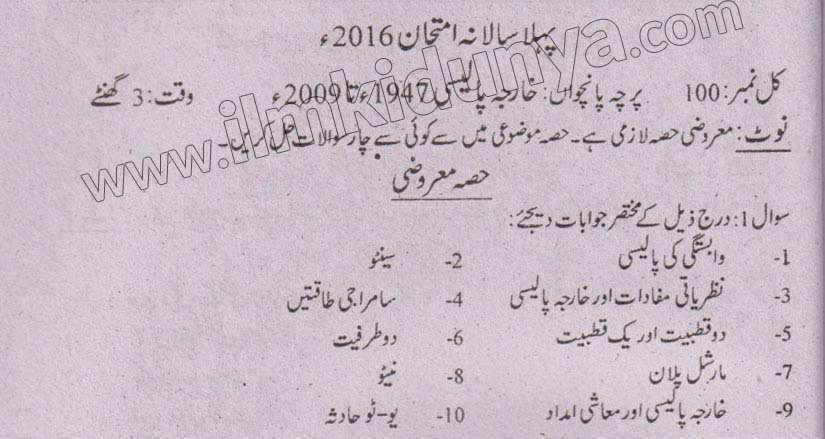 پہلا سالانہ امتحان 2016ء
کل نمبر: 100 پرچہ پانچواں: خارجہ پالیسی 1947ء تا 2009ء وقت: 3 گھنٹے
نوٹ: معروضی حصہ لازمی ہے۔ حصہ موضوعی میں سے کوئی سے چار سوالات حل کریں۔
حصہ معروضی
سوال 1: درج ذیل کے مختصر جوابات دیجئے:
1- وابستگی کی پالیسی 2- سینٹو
3- نظریاتی مفادات اور خارجہ پالیسی 4- سامراجی طاقتیں
5- دو قطبیت اور یک قطبیت 6- دو طرفیت
7- مارشل پلان 8- نیٹو
9- خارجہ پالیسی اور معاشی امداد 10- یو-ٹو حادثہ
www.ilmkidunya.com